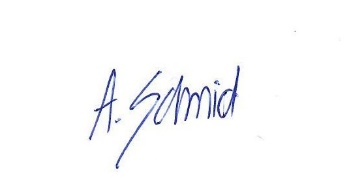 A. Schmid